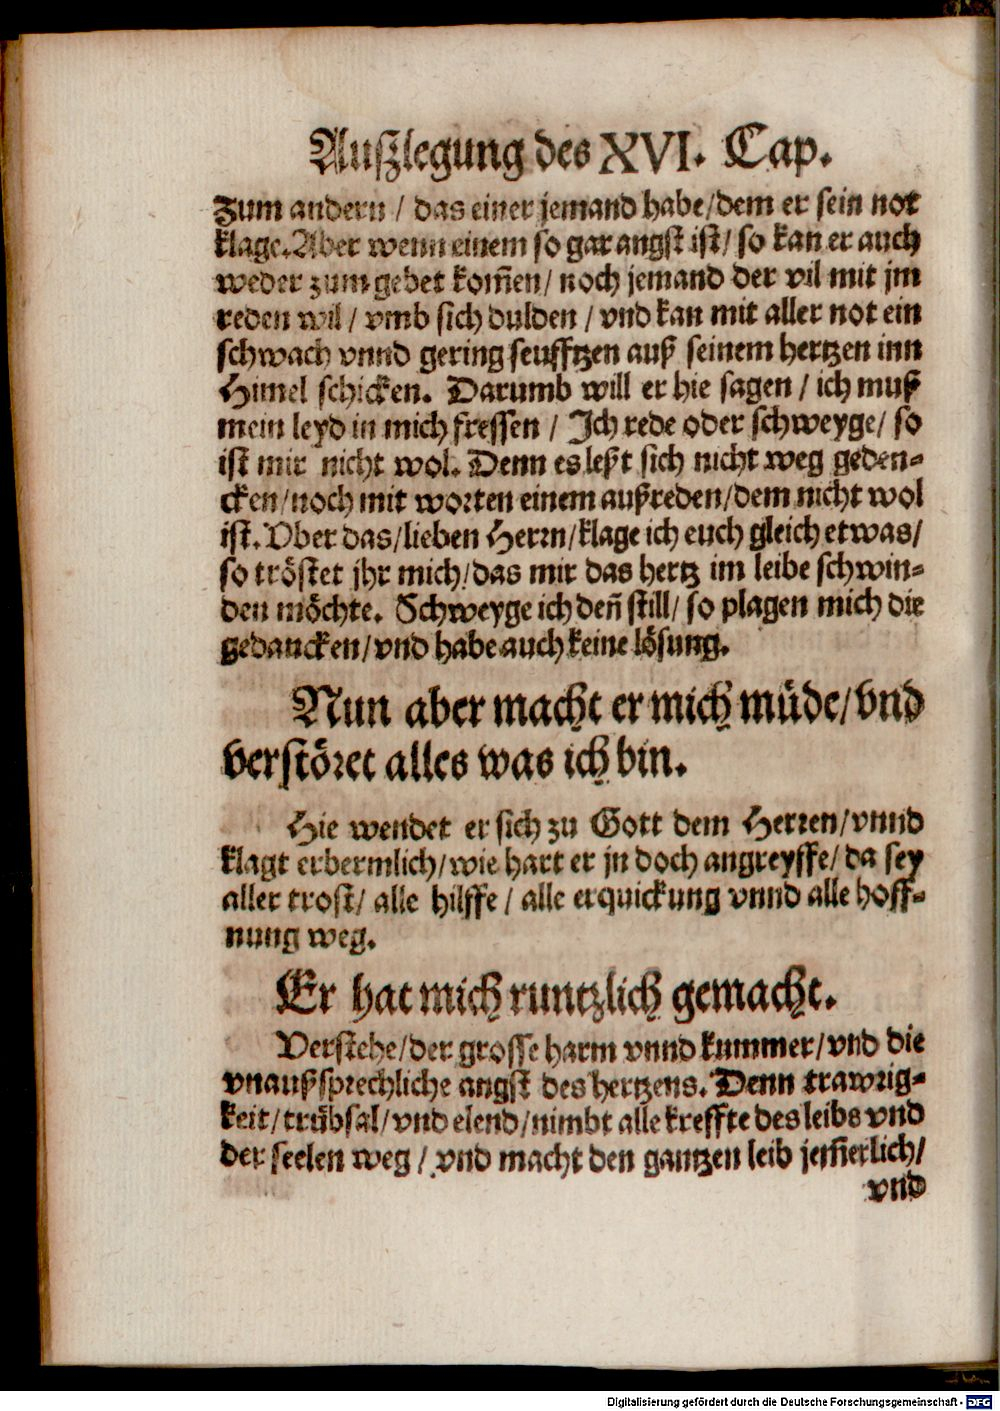 Auſzlegung des XVI. Cap.
Zum andern / das einer jemand habe/dem er sein not
klage. Aber wenn einem so gar angst ist/ so kan er auch
weder zum gebet kom̃en/ noch jemand der vil mit jm
reden wil / vmb sich dulden / vnd kan mit aller not ein
schwach vnnd gering seufftzen auß seinem hertzen inn
Himel schicken. Darumb will er hie sagen / ich muß
mein leyd in mich fressen / Ich rede oder schweyge/ so
ist mir nicht wol. Denn es leßt sich nicht weg geden⸗
cken/noch mit worten einem außreden/dem nicht wol
ist. Vber das/lieben Herrn/klage ich euch gleich etwas/
so tröstet jhr mich/das mir das hertz im leibe schwin⸗
den möchte. Schweyge ich deñ still/ so plagen mich die
gedancken/vnd habe auch keine lösung.
Nun aber macht er mich müde/vnd
verstöret alles was ich bin.
Hie wendet er sich zu Gott dem Herren/vnnd
klagt erbermlich/wie hart er jn doch angreyffe/ da sey
aller trost/ alle hilffe / alle erquickung vnnd alle hoff⸗
nung weg.
Er hat mich runtzlich gemacht.
Verstehe/der grosse harm vnnd kummer/vnd die
vnaußsprechliche angst des hertzens. Denn trawrig⸗
keit/trübsal/vnd elend/nimbt alle kreffte des leibs vnd
der seelen weg / vnd macht den gantzen leib jem̃erlich/
vnd
Digitalisierung gefördert durch die Deutsche Forschungsgemeinschaft - DFG